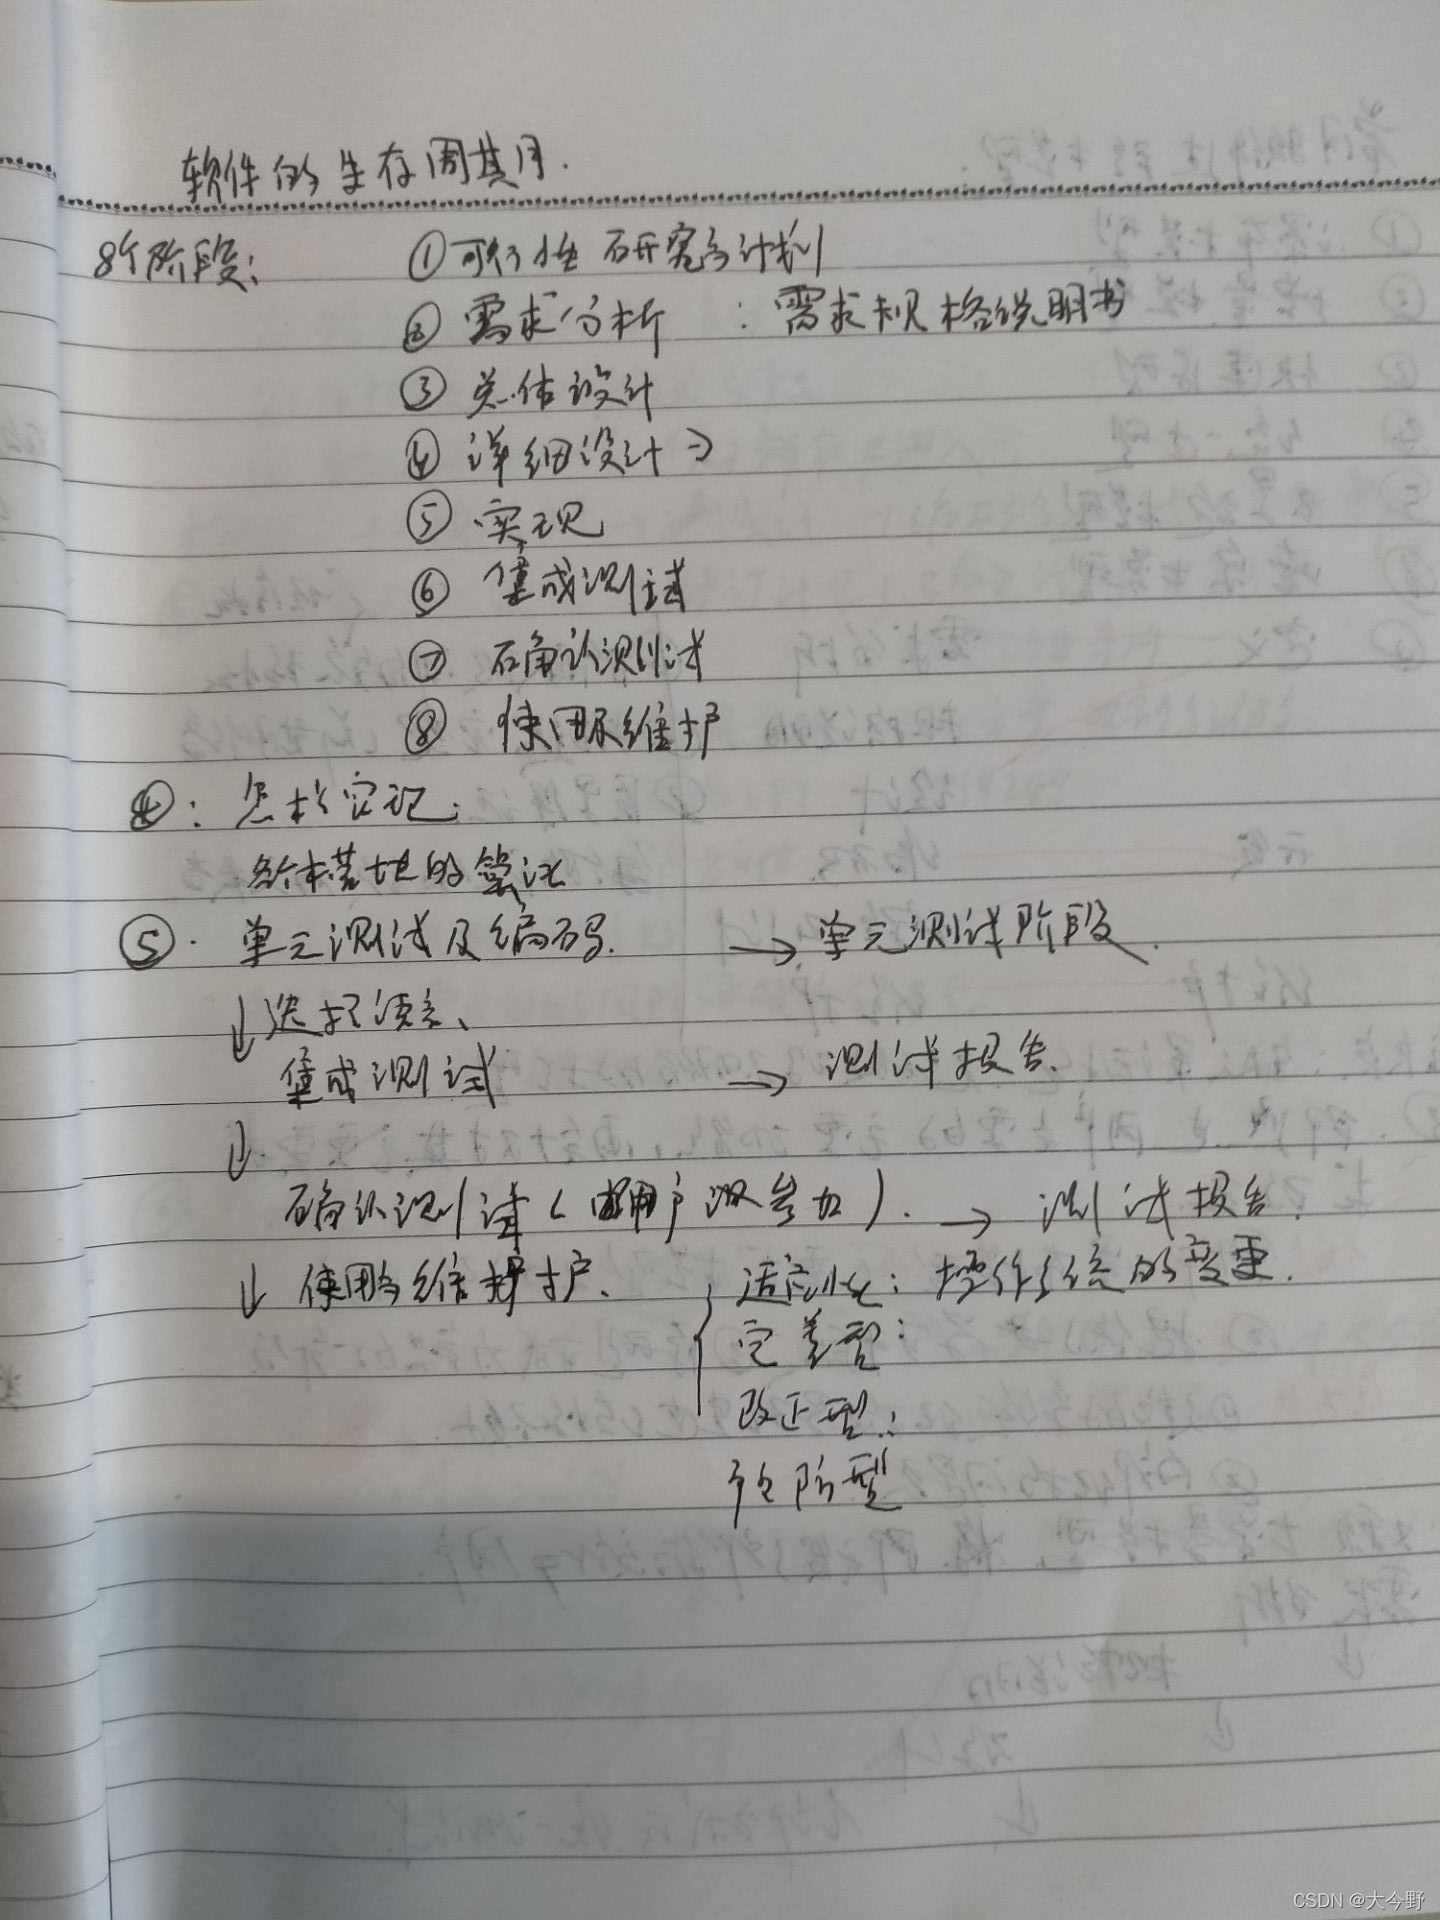 软件的生存周期.
8个阶段: ①可行性研究与计划
② 需求分析 : 需求规格说明书
③ 总体设计
④ 详细设计 →
⑤ 实现
⑥ 集成测试
⑦ 确认测试
⑧ 使用和维护
④: 怎样实现:
的算法
⑤. 单元测试及编码. → 单元测试阶段.
↓ 选择语言、
集成测试 → 测试报告.
↓
确认测试(由用户参加). → 测试报告.
↓ 使用与维护. 适应性: 操作系统的变更.
完善型:
改正型:
预防型
CSDN @大今野